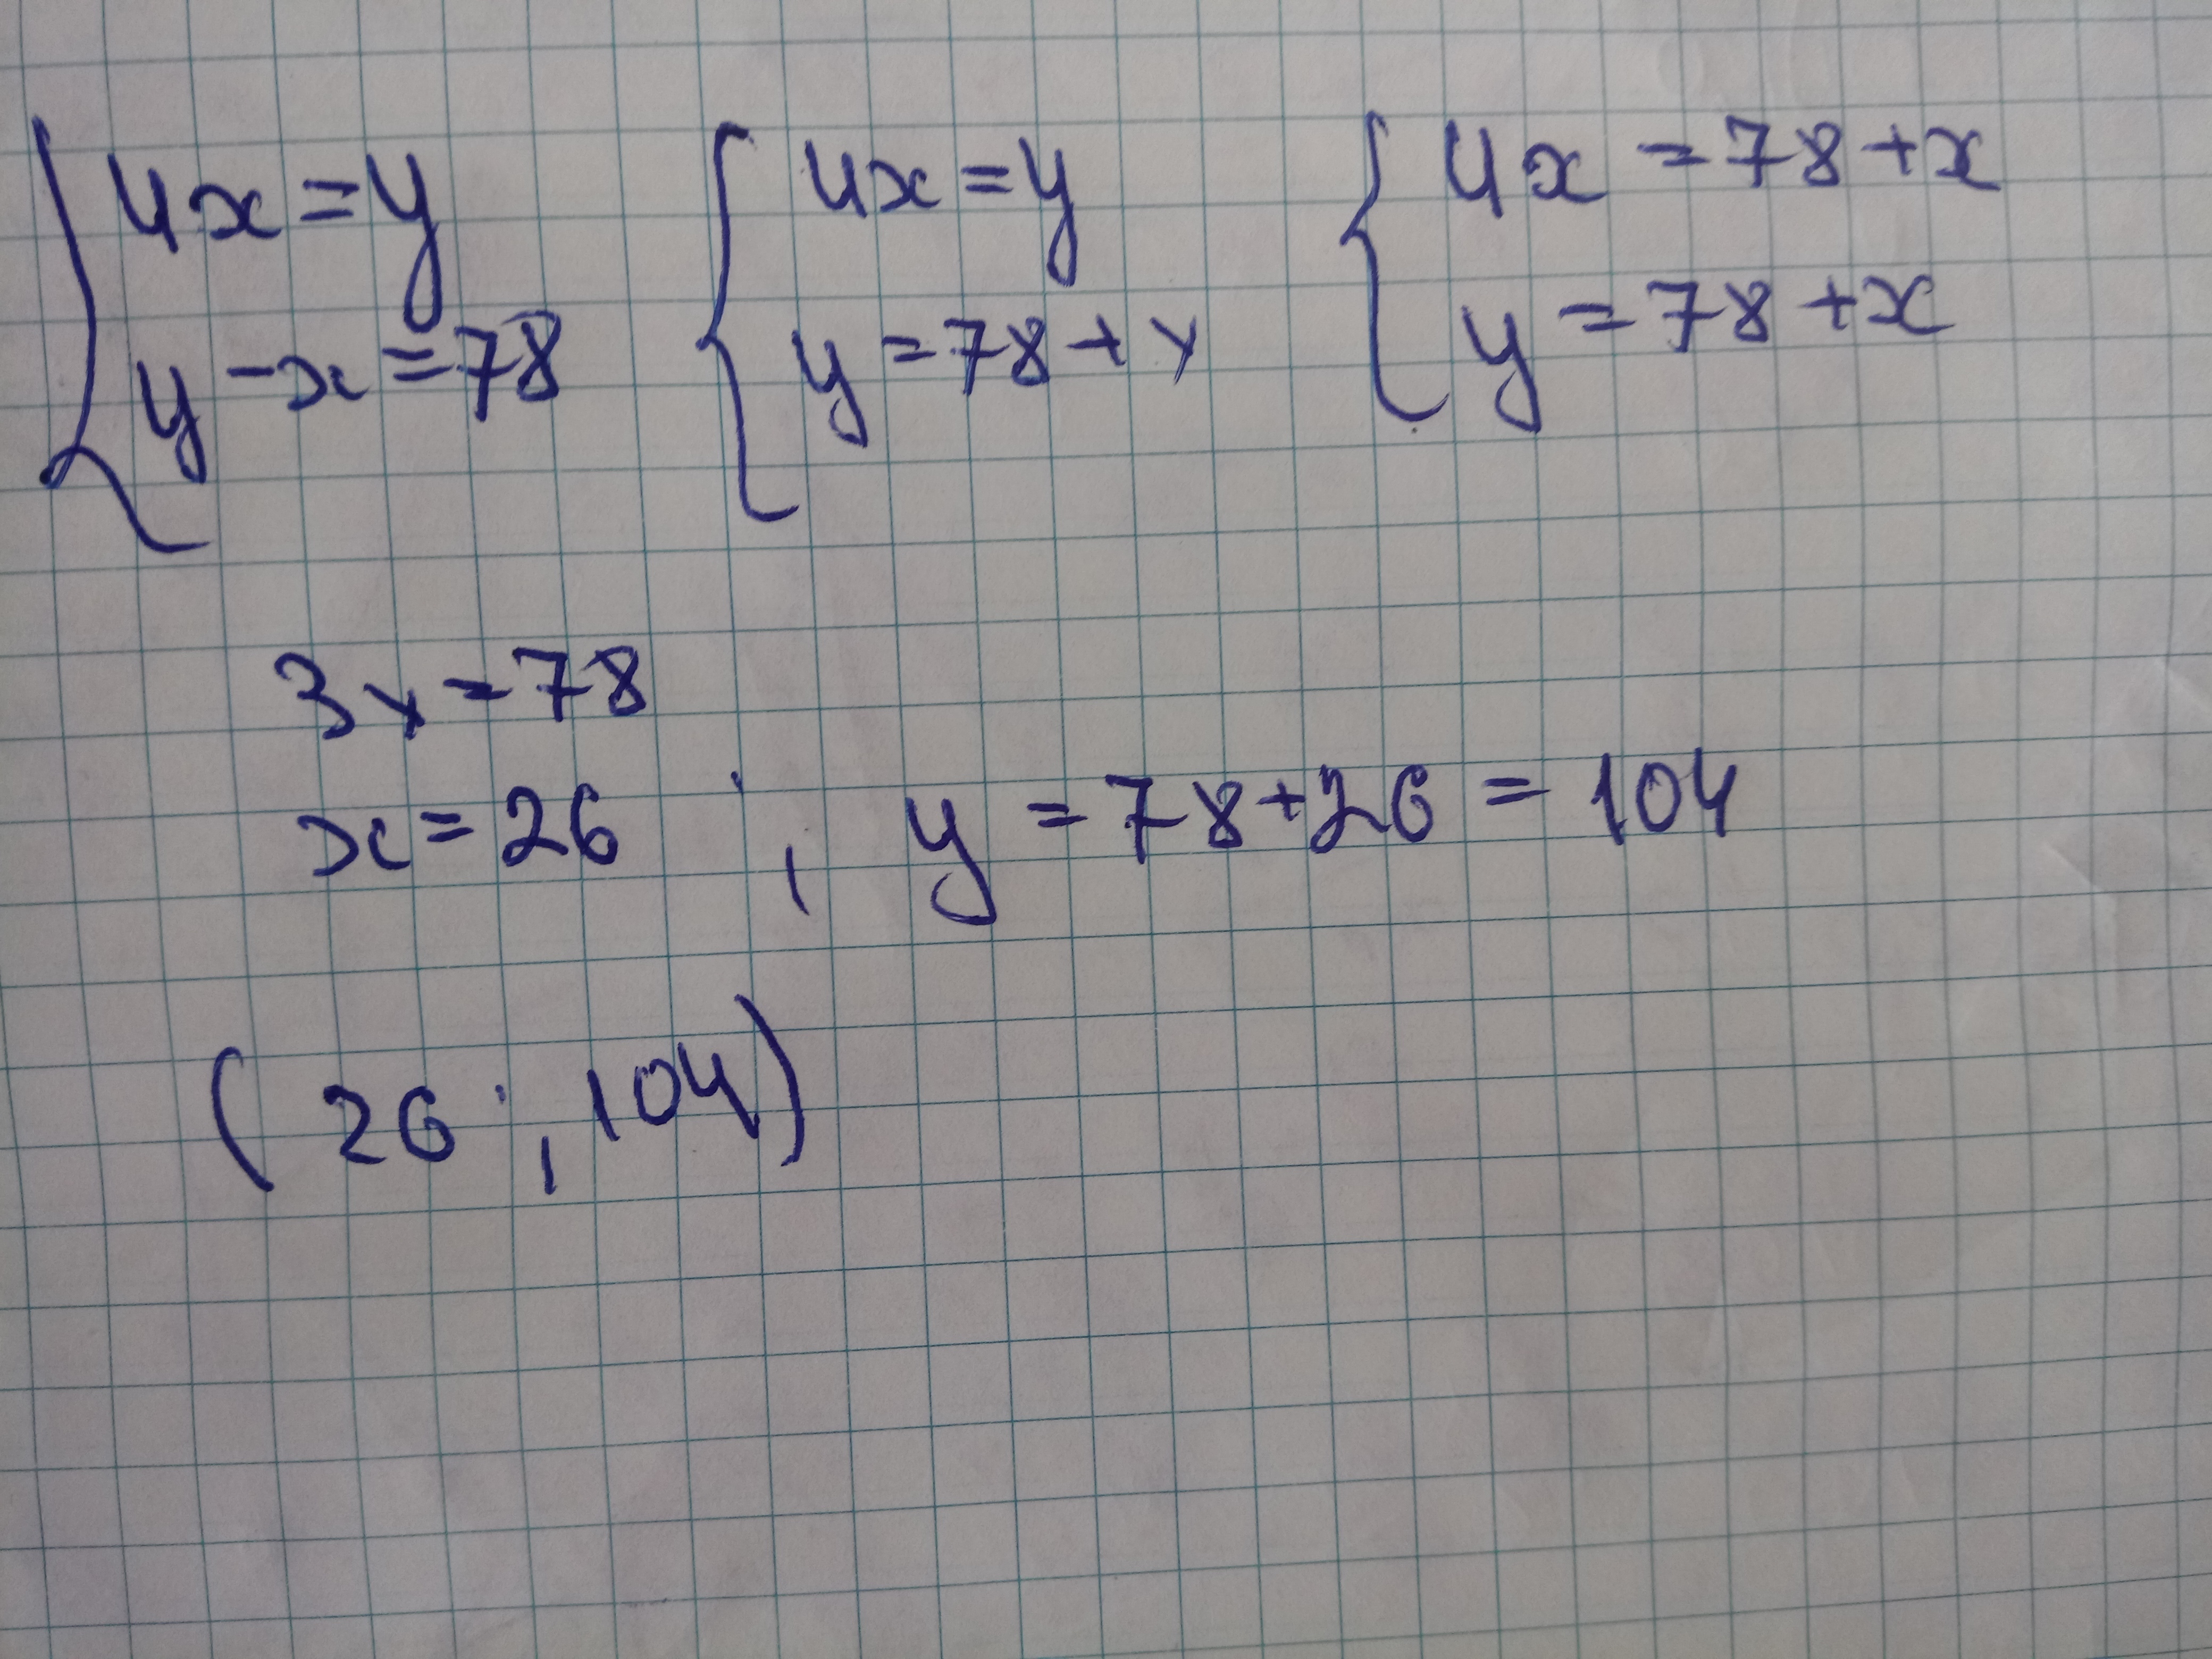 4x = y
y - x = 78
4x = y
y = 78 + x
4x = 78 + x
y = 78 + x
3x = 78
x = 26 ; y = 78 + 26 = 104
(26 ; 104)